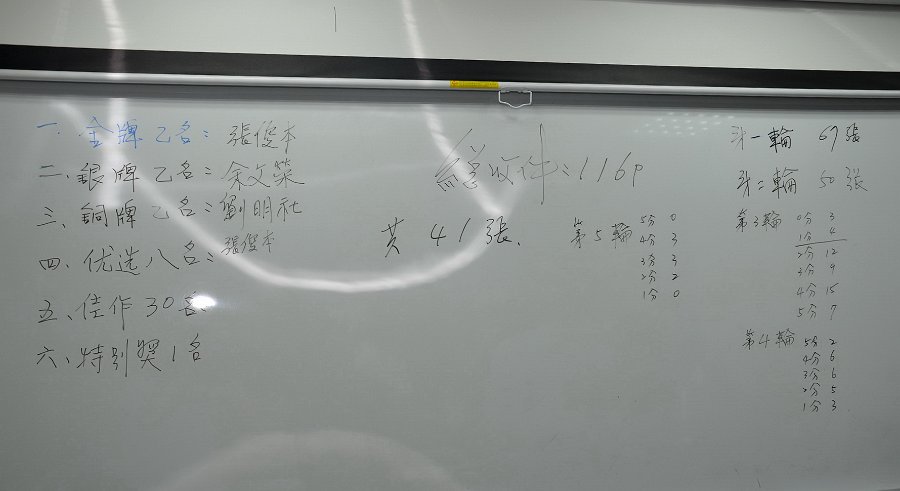 一、金牌乙名：張俊本
二、銀牌乙名：余文榮
三、銅牌乙名：劉明社
張俊本
四、优选八名：
五、佳作30名
六、特别獎1名
總收件：116p
共41張.
第5輪 5分 0
4分 3
3分 3
2分 2
1分 0
第一輪 67張
第二輪 50張
第3輪 0分 3
1分 4
2分 12
3分 9
4分 15
5分 7
第4輪 5分 2
4分 6
3分 6
2分 5
1分 3